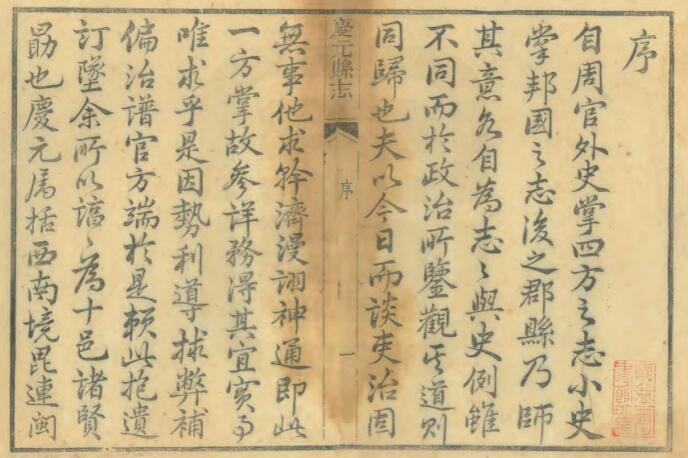 序
自周官外史掌四方之志小史
掌邦國之志後之郡縣乃師
其意各自為志〻與史例雖
不同而於政治所鑒觀其道則
同歸也夫以今日而談吏治固
慶元縣志
序
一
無事他求幹濟漫詡神通即此
一方掌故參詳務得其宜實事
唯求乎是因勢利導捄弊補
偏治譜官方端於是賴此抱遺
訂墜余所以諄〻為十邑諸賢
勗也慶元屬括西南境毘連閩